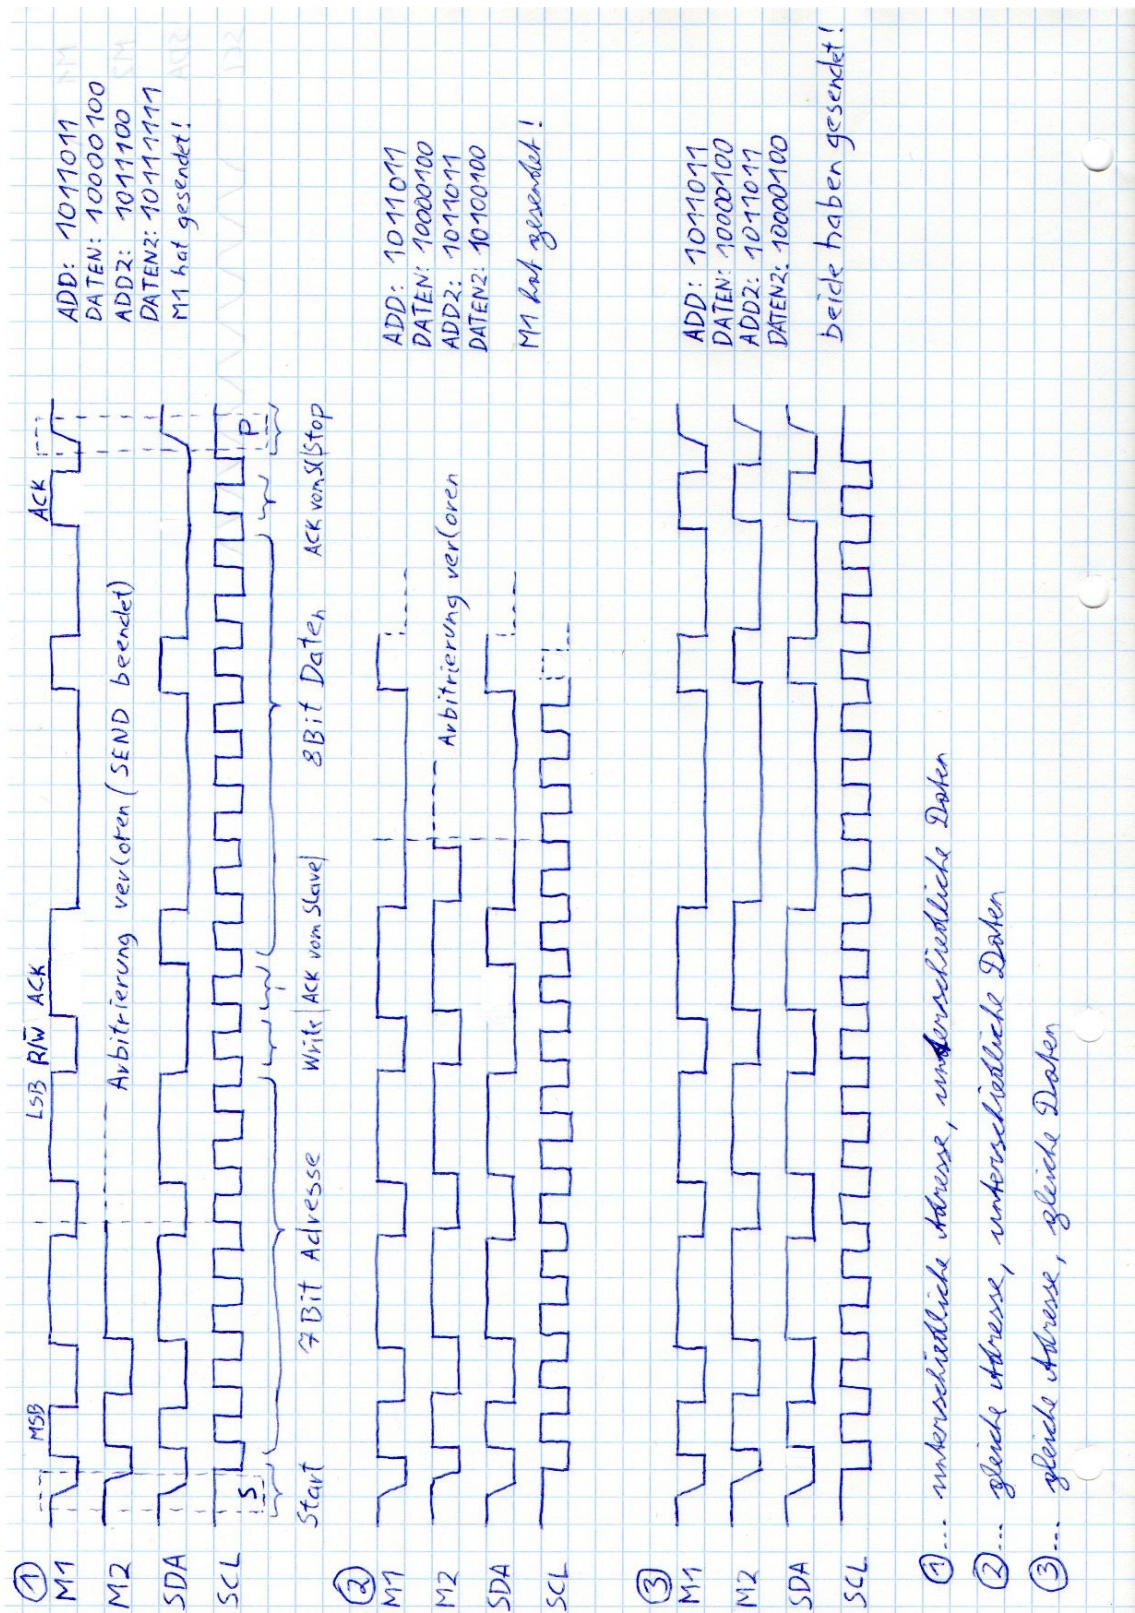 ① MSB LSB R/W̅ ACK ACK
M1
M2 Arbitrierung verloren (SEND beendet)
SDA
SCL
S P
Start 7Bit Adresse Write | ACK vom Slave | 8Bit Daten ACK vom Sl | Stop
ADD: 1011011
DATEN: 10000100
ADD2: 1011100
DATEN2: 10111111
M1 hat gesendet!
②
M1
M2 Arbitrierung verloren
SDA
SCL
ADD: 1011011
DATEN: 10000100
ADD2: 1011011
DATEN2: 10100100
M1 hat gesendet!
③
M1
M2
SDA
SCL
ADD: 1011011
DATEN: 10000100
ADD2: 1011011
DATEN2: 10000100
beide haben gesendet!
①... unterschiedliche Adresse, unterschiedliche Daten
②... gleiche Adresse, unterschiedliche Daten
③... gleiche Adresse, gleiche Daten